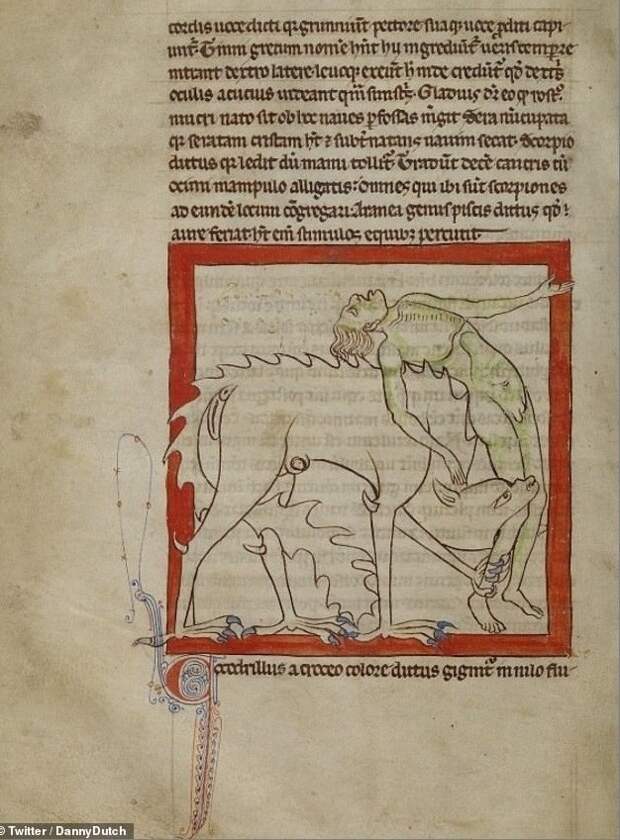 cordis uoce dicti qr grunniunt pectore suaq; uoce proditi capi
unt̄. grecum nom̄e hn̄t hij ingrediunt̄ ueris tempore
intrant dextro latere leuoq; exeunt h̄ inde credunt̄ qd̄ dext̄s
oculis acucius uideant qm̄ sinist̄s. Gladius dr̄ eo q rost̄
mucrinato sit ob hoc naues p̄fossas m̄git Serra nūcupata
qr serratam cristam hȳt ⁊ subt̄natans nauim secat. Scorpio
dictus qr ledit dū manu tollit̄. Tradūt decē cancris cū
ocimi manipulo alligatis: omnes qui ibi sūt scorpiones
ad eundē locum cōgregari. Aranea genus piscis dictus qd̄
aure feriat. h̄t em̄ stimulos equibz percutit
Cocodrillus a croceo colore dictus gignit̄ in nilo flu
© Twitter / DannyDutch